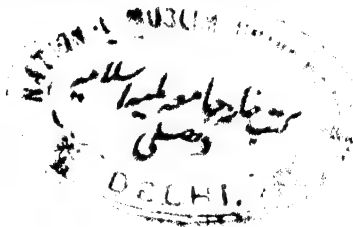 NATIONAL MUSLIM
کتب خانہ جامعہ ملیہ اسلامیہ
دہلی
DELHI.